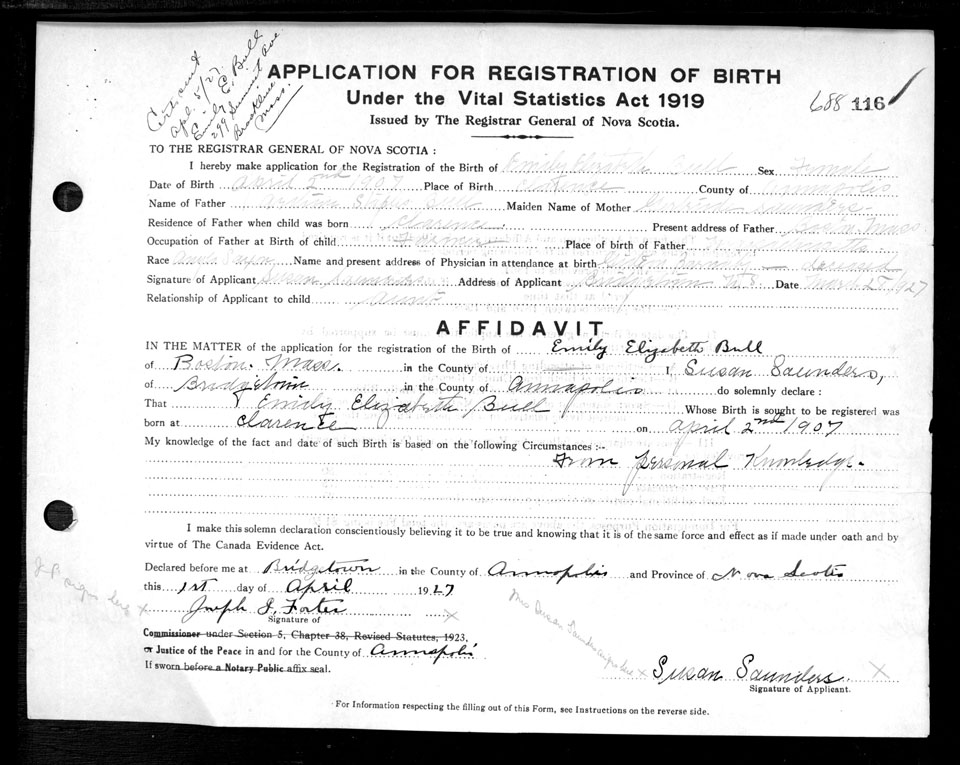 Cert. sent
Apl. 5/27
Emily E. Bull
299 Summit Ave.
Brookline
Mass.
APPLICATION FOR REGISTRATION OF BIRTH
Under the Vital Statistics Act 1919
Issued by The Registrar General of Nova Scotia.
688 116
TO THE REGISTRAR GENERAL OF NOVA SCOTIA :
I hereby make application for the Registration of the Birth of Emily Elizabeth Bull Sex Female
Date of Birth April 2nd 1907 Place of Birth Clarence County of Annapolis
Name of Father Bull Maiden Name of Mother Saunders
Residence of Father when child was born Clarence Present address of Father Mass.
Occupation of Father at Birth of child Farmer Place of birth of Father
Race Anglo Saxon Name and present address of Physician in attendance at birth deceased
Signature of Applicant Susan Saunders Address of Applicant Bridgetown N.S. Date March 28 1927
Relationship of Applicant to child Aunt
AFFIDAVIT
IN THE MATTER of the application for the registration of the Birth of Emily Elizabeth Bull
of Boston. Mass. in the County of I, Susan Saunders,
of Bridgetown in the County of Annapolis do solemnly declare :
That Emily Elizabeth Bull Whose Birth is sought to be registered was
born at Clarence on April 2nd 1907
My knowledge of the fact and date of such Birth is based on the following Circumstances :-
From personal Knowledge.
I make this solemn declaration conscientiously believing it to be true and knowing that it is of the same force and effect as if made under oath and by
virtue of The Canada Evidence Act.
Declared before me at Bridgetown in the County of Annapolis and Province of Nova Scotia
this 1st day of April 1927
J P sign here x
Joseph I. Foster x
Signature of
Mrs Susan Saunders sign here x
Commissioner under Section 5, Chapter 38, Revised Statutes, 1923,
or Justice of the Peace in and for the County of Annapolis
If sworn before a Notary Public affix seal.
Susan Saunders. x
Signature of Applicant.
For Information respecting the filling out of this Form, see Instructions on the reverse side.